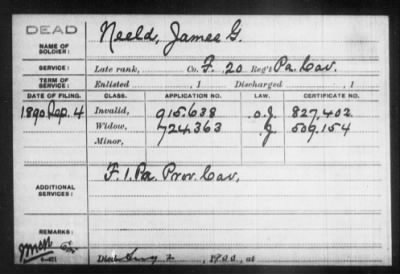 DEAD
NAME OF SOLDIER: Neeld, James G.
SERVICE: Late rank, Co. F. 20 Reg't Pa. Cav.
TERM OF SERVICE: Enlisted , 1 Discharged , 1
DATE OF FILING. CLASS. APPLICATION NO. LAW. CERTIFICATE NO.
1890 Sep. 4 Invalid, 915.638 827.402
Widow, 724.363 509.154
Minor,
ADDITIONAL SERVICES: F. 1. Pa. Prov. Cav.
REMARKS:
Died 2, 1900, at